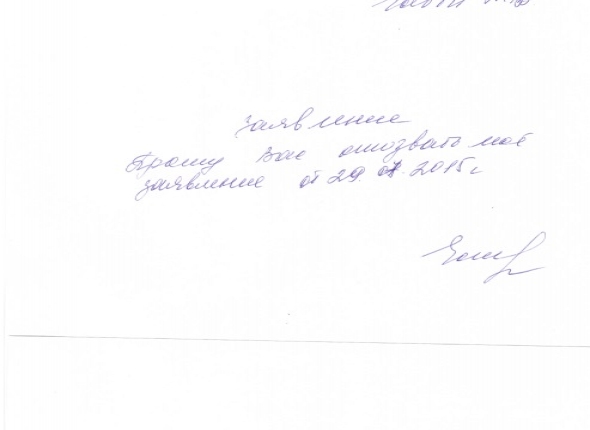 заявление
Прошу Вас отозвать моё
заявление от 29. 2015г